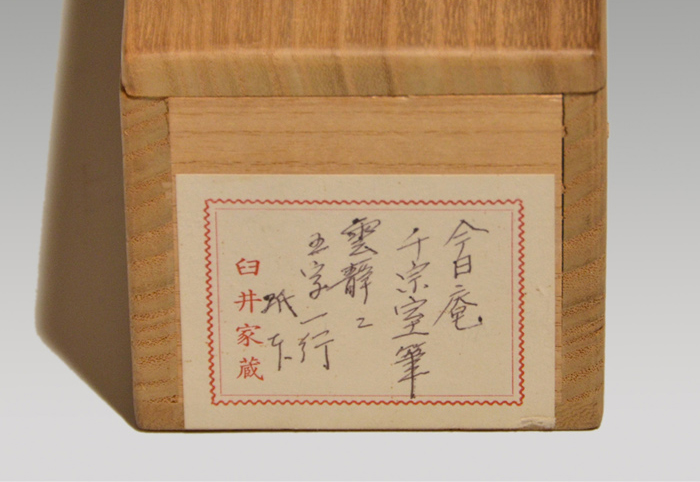 今日庵
千宗室筆
雲静ニ
五字一行
紙本
臼井家蔵